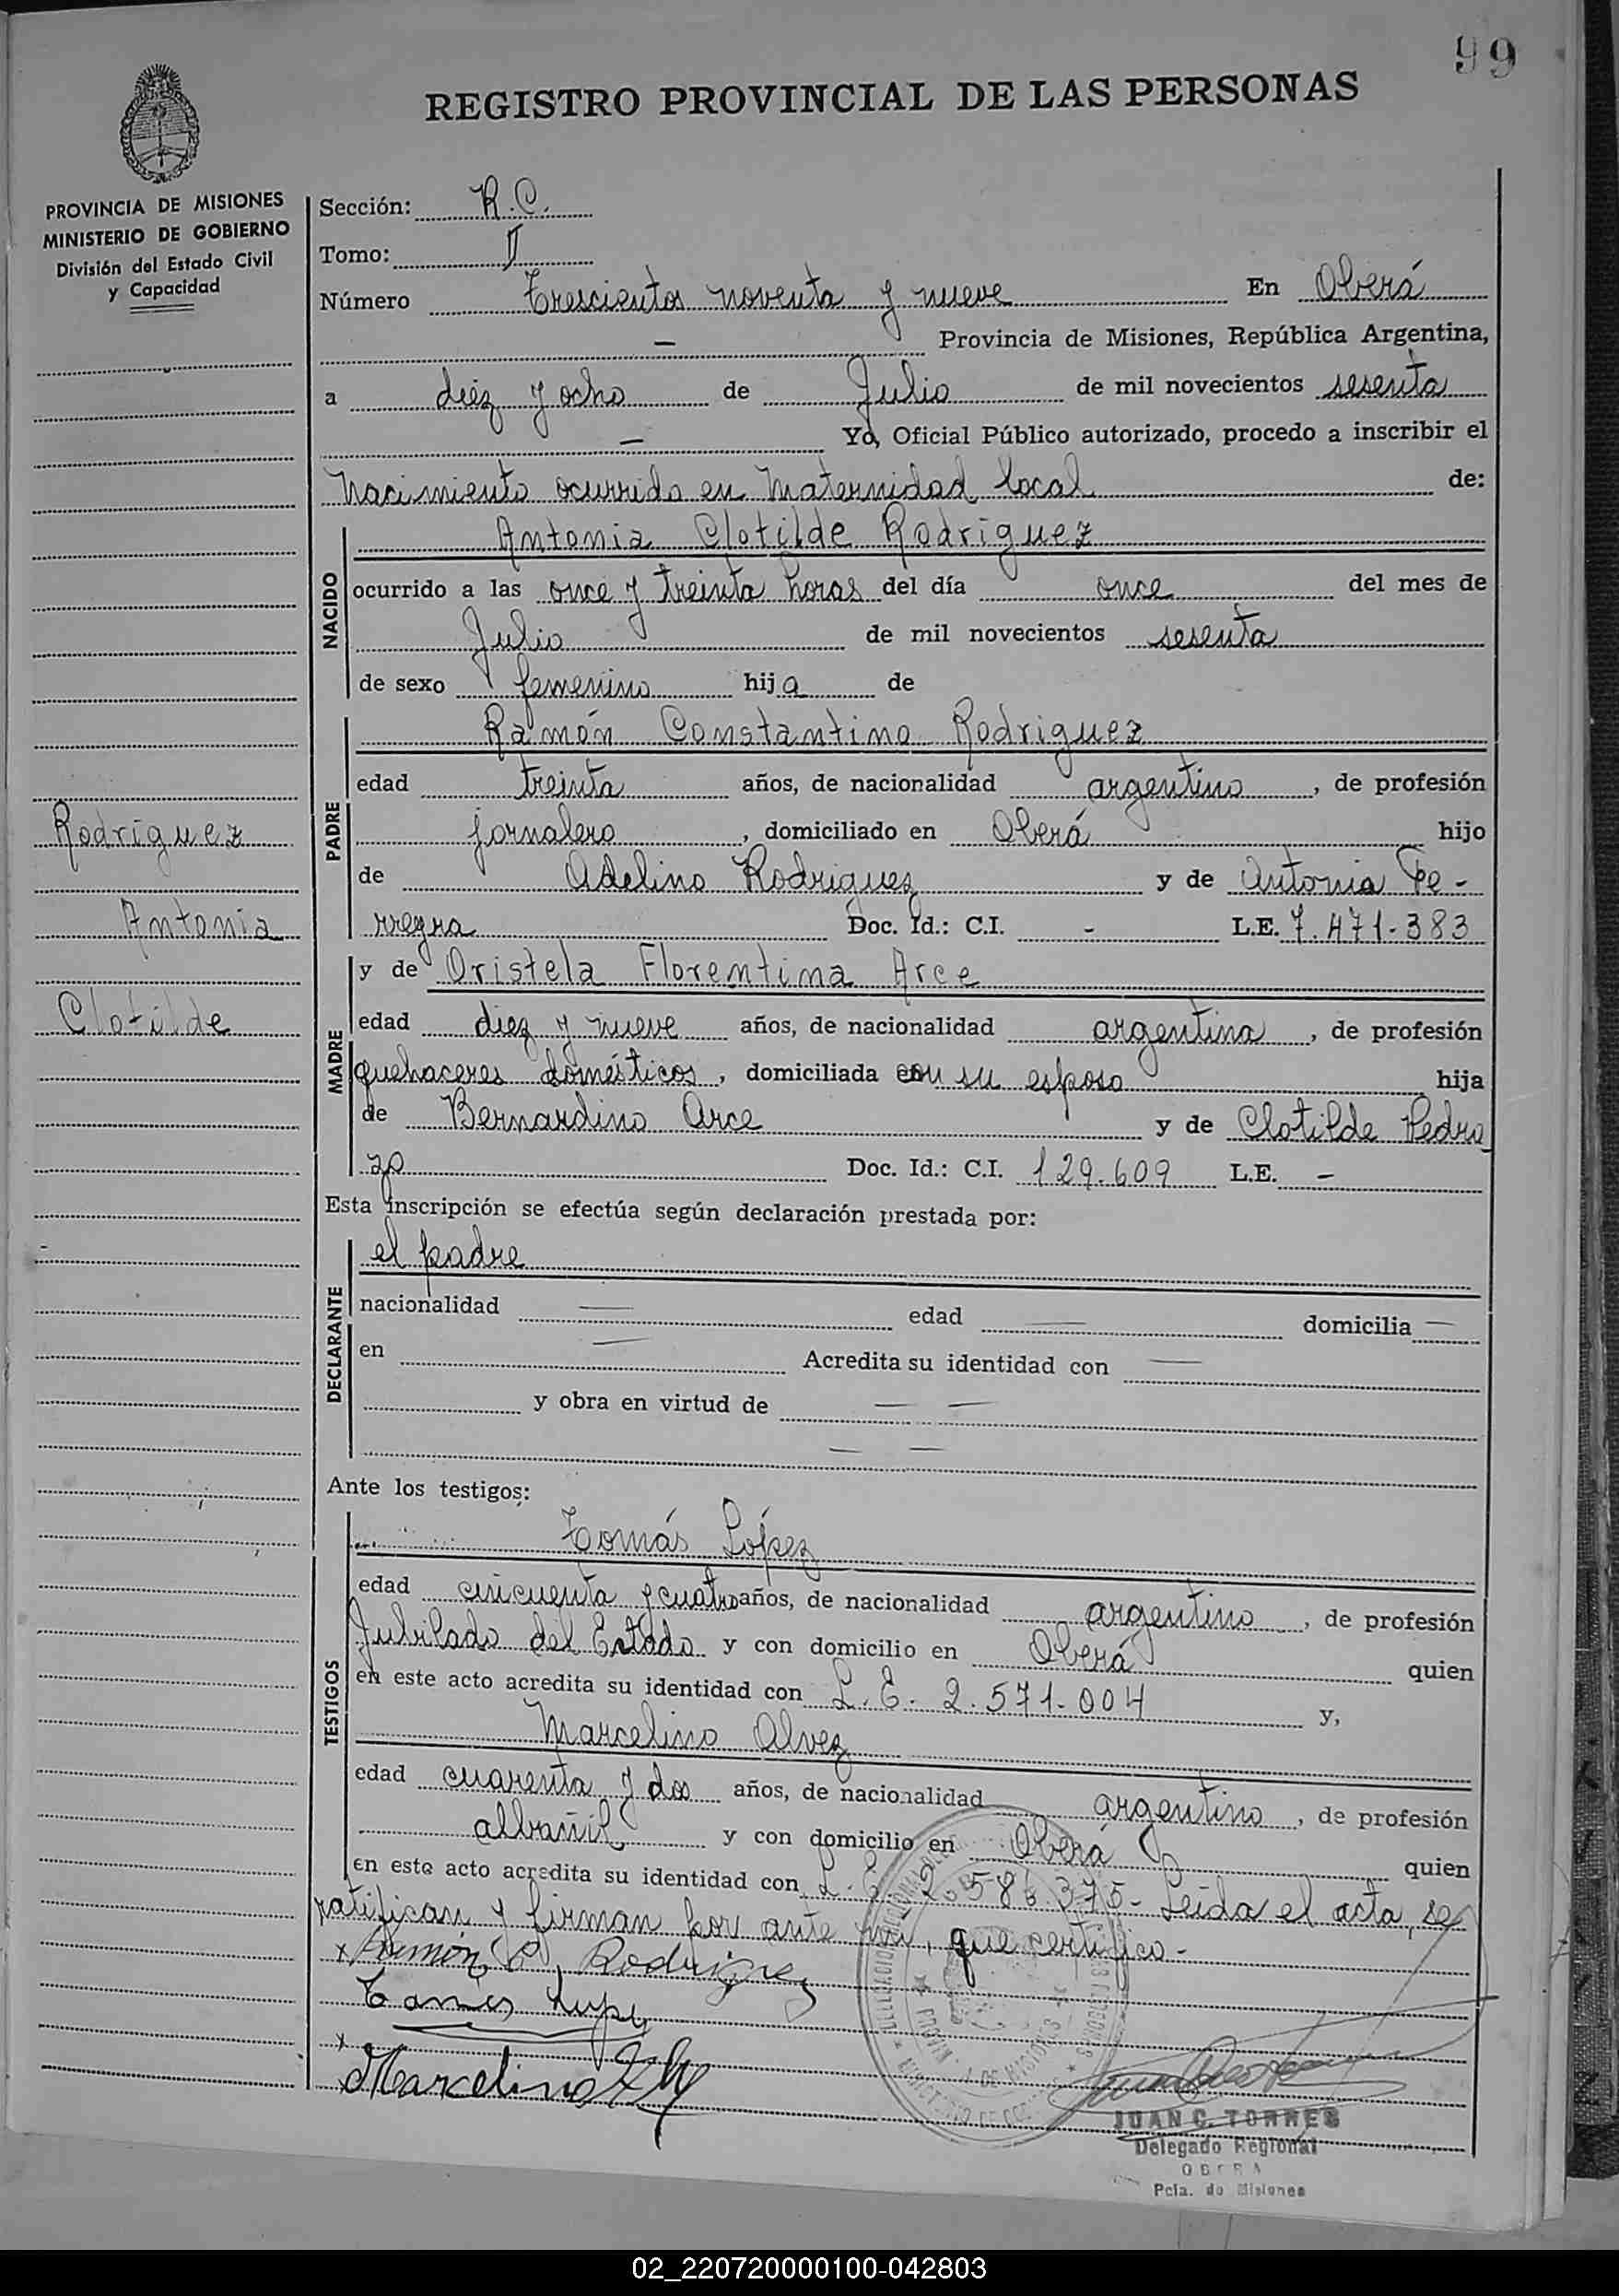 99
REGISTRO PROVINCIAL DE LAS PERSONAS
PROVINCIA DE MISIONES
MINISTERIO DE GOBIERNO
División del Estado Civil
y Capacidad
Sección: R.C.
Tomo: II
Número Trescientos noventa y nueve En Oberá
— Provincia de Misiones, República Argentina,
a diez y ocho de Julio de mil novecientos sesenta
— Yo, Oficial Público autorizado, procedo a inscribir el
Nacimiento ocurrido en Maternidad local de:
NACIDO
Antonia Clotilde Rodriguez
ocurrido a las once y treinta horas del día once del mes de
Julio de mil novecientos sesenta
de sexo femenino hija de
PADRE
Ramón Constantino Rodriguez
edad treinta años, de nacionalidad argentino, de profesión
jornalero, domiciliado en Oberá hijo
de Adelino Rodriguez y de Antonia Fe-
rreyra Doc. Id.: C.I. - L.E. 7.471.383
MADRE
y de Oristela Florentina Arce
edad diez y nueve años, de nacionalidad argentina, de profesión
quehaceres domésticos, domiciliada con su esposo hija
de Bernardino Arce y de Clotilde Pedro
zo Doc. Id.: C.I. 129.609 L.E. —
Esta inscripción se efectúa según declaración prestada por:
DECLARANTE
el padre
nacionalidad — edad — domicilia —
en — Acredita su identidad con —
y obra en virtud de — —
— —
Ante los testigos:
TESTIGOS
Tomás López
edad cincuenta y cuatro años, de nacionalidad argentino, de profesión
Jubilado del Estado y con domicilio en Oberá quien
en este acto acredita su identidad con L.E. 2.571.004 y,
Marcelino Alvez
edad cuarenta y dos años, de nacionalidad argentino, de profesión
albañil y con domicilio en Oberá quien
en este acto acredita su identidad con L.E. 2.586.375- Leida el acta, se
ratifican y firman por ante mi, que certifico-
x Ramón C. Rodriguez
x Marcelino
JUAN C. TORRES
Delegado Regional
OBERA
Pcia. de Misiones
Rodriguez
Antonia
Clotilde
02_220720000100-042803